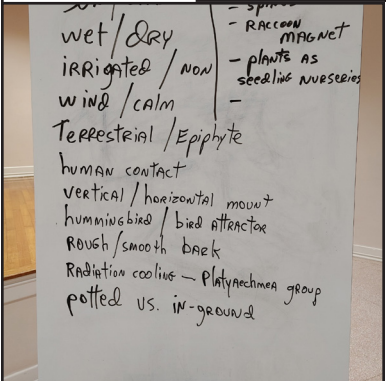 wet/DRY
iRRigated / NON
wind / CALM
TERRESTRIAL / Epiphyte
human contact
vertical / horizontal mount
hummingbird / bird attractor
Rough/smooth bark
Radiation cooling – Platyaechmea group
potted vs. in-ground
– RACCOON
MAGNET
– plants as
seedling nurseries
–